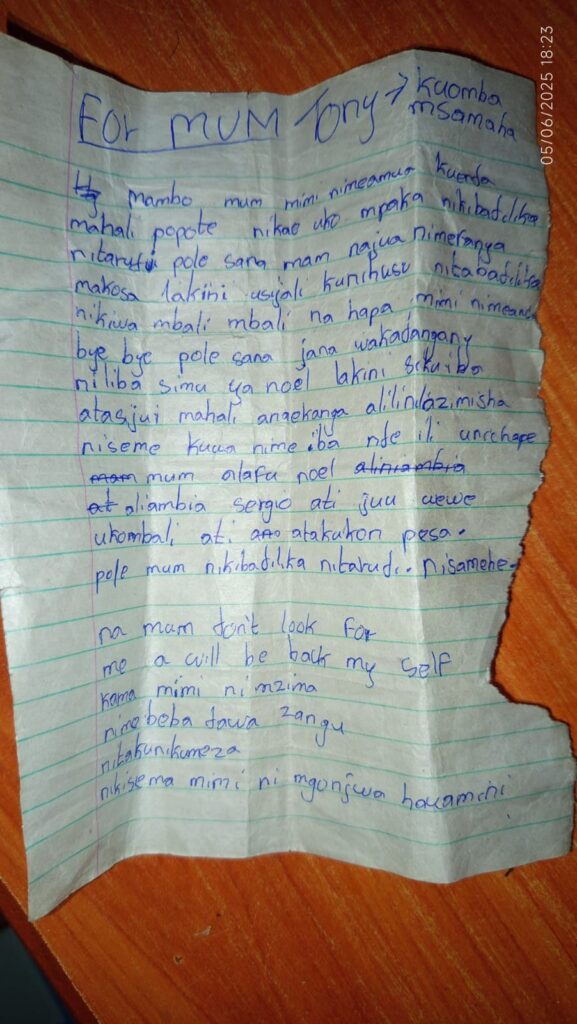 For MUM Tony → kuomba
msamaha
05/06/2025 18:23
mambo mum mimi nimeamua kuenda
mahali popote nikae uko mpaka nikibadilika
nitarudi pole sana mam najua nimefanya
makosa lakini usijali kunihusu nitabadilika
nikiwa mbali mbali na hapa mimi nimeand
bye bye pole sana jana wakadangany
niliba simu ya noel lakini sikuiba
atasjui mahali angekanga alilindazimisha
niseme kuwa nime iba nde ili unichape
mam mum alafu noel aliniambia
at aliambia sergio ati juu wewe
ukombali ati ano atakukon pesa.
pole mum nikibadilika nitarudi.. nisamehe.
na mum don't look for
me a will be back my self
kama mimi ni mzima
nimebeba dawa zangu
nitakunikumeza
nikisema mimi ni mgonjwa hawamini